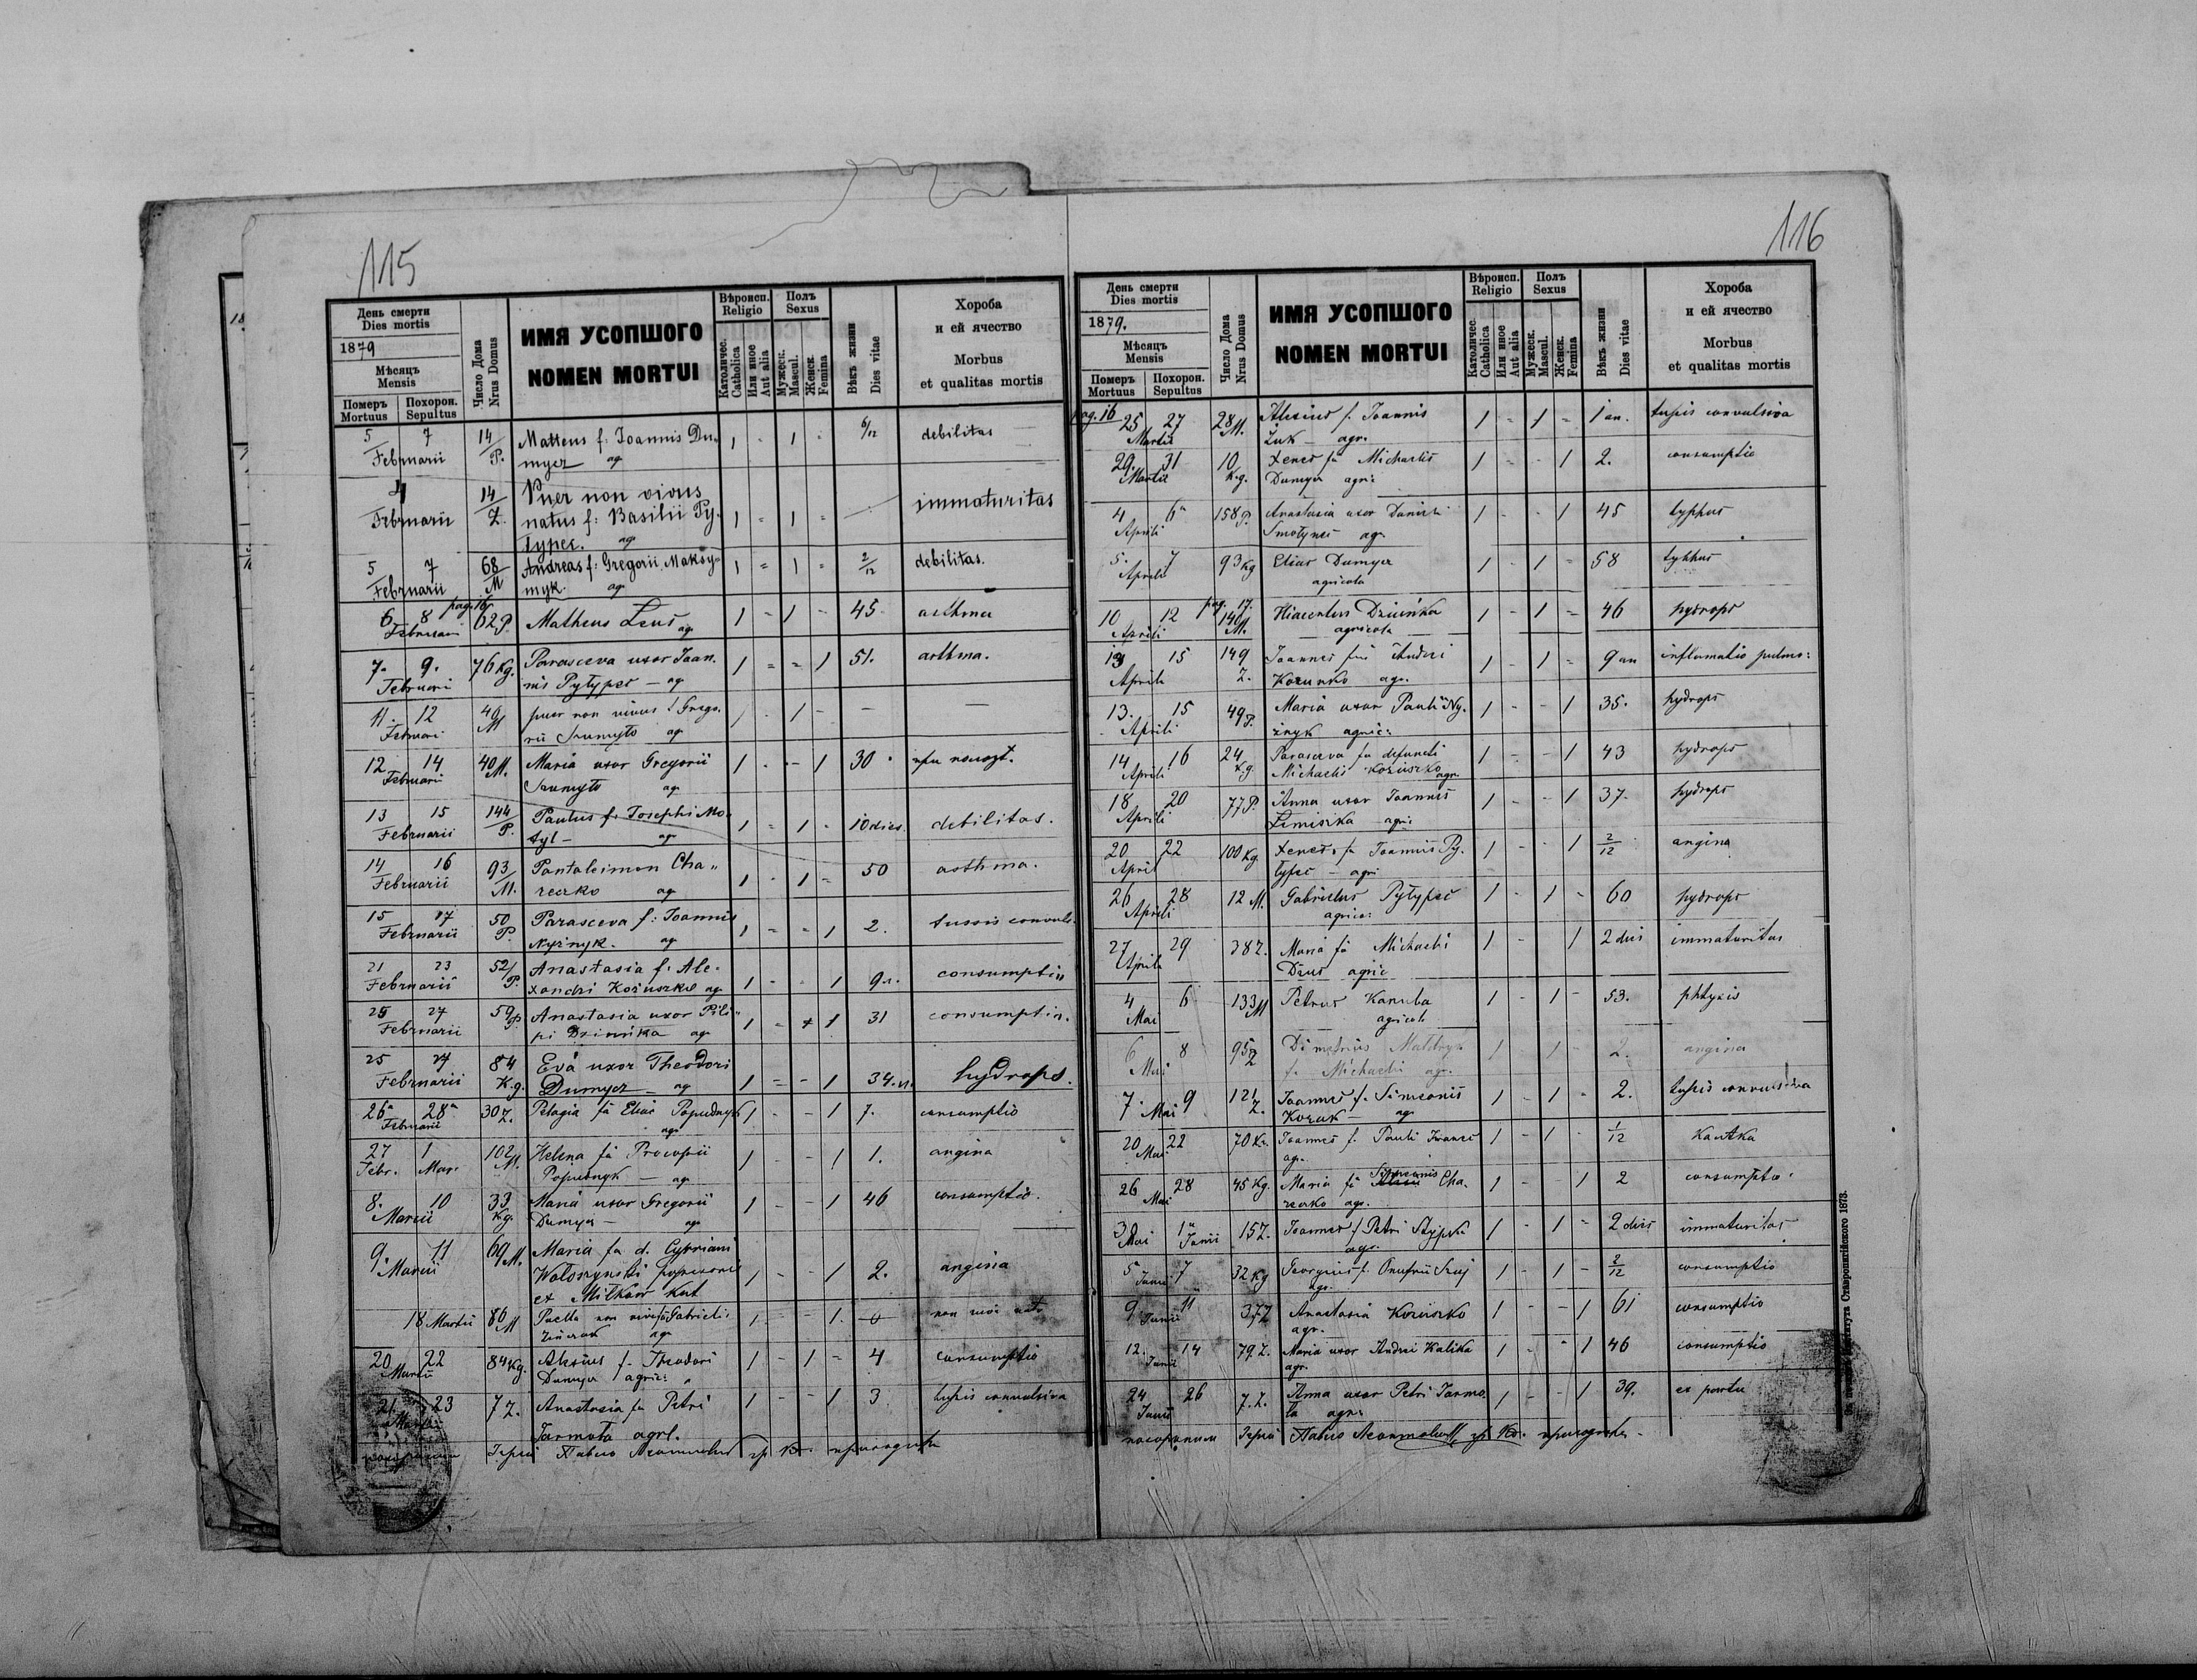 115
День смерти
Dies mortis
1879
Мѣсяцъ
Mensis
Померъ
Mortuus
Похорон.
Sepultus
Число Дома
Nrus Domus
ИМЯ УСОПШОГО
NOMEN MORTUI
Вѣроисп.
Religio
Католичес.
Catholica
Или иное
Aut alia
Полъ
Sexus
Мужеск.
Mascul.
Женск.
Femina
Вѣкъ жизни
Dies vitae
Хороба
и ей ячество
Morbus
et qualitas mortis
5 7 14 Matteus f: Joannis Du- 1 - 1 - 6/12 debilitas
Februarii P. mycz ag
4 14 Puer non vivus immaturitas
Februarii Z. natus f: Basilii Py- 1 - 1 -
typec. ag
5 7 68 Andreas f: Gregorii Maksy- 1 = 1 = 2/12 debilitas.
Februarii M myk. ag
pag. 16
6 8 62 P. Matheus Leus ag 1 - 1 - 45 asthma
Februarii
7. 9. 76 Kg. Parasceva uxor Joan- 1 = = 1 51. asthma.
Februari nis Pytypec - ag
11. 12 49 puer non vivus f Grego- 1 - 1 - — —
Februari M rii Szumyło ag
12 14 40 M. Maria uxor Gregorii 1 - - 1 30
Februarii Szumyło ag
13 15 144 Paulus f. Josephi Mo- 1 = 1 - 10 dies. debilitas.
Februarii P. tyl - ag
14 16 93 Pantaleimon Cha- 1 - 1 = 50 asthma.
Februarii M. reczko ag
15 17 50 Parasceva f: Joannis 1 = = 1 2. tussis convuls.
Februarii P. Nyżnyk. ag
21 23 52/ Anastasia f: Ale- 1 - - 1 9 a. consumptio
Februarii P. xandri Kożuszko ag
25 27 59 P. Anastasia uxor Pili- 1 = 1 31 consumptio.
Februarii pi Dziuńka ag
25 27 84 Eva uxor Theodori 1 = - 1 34. hydrops.
Februarii K.g. Dumycz - ag
26 28 30 Z. Pelagia fa Eliae Popudnyk 1 - - 1 7. consumptio
Februarii ag
27 1 102 Helena fa Procopii 1 - - 1 1. angina
Febr. Mar. M. Popudnyk — ag
8. 10 33 Maria uxor Gregorii 1 - - 1 46 consumptio.
Martii Kg. Dumycz — ag
9. 11 69 M. Maria fa d. Cypriani
Martii Wołoszynski 1 - - 1 2. angina
ex Milków
18 Martii 86 Puella non viva Gabrielis 1 - - 1. 0 non viva nata
M ag
20 22 84 Kg. Alexius f. Theodori 1 - 1 - 4 consumptio
Martii Dumycz agric:
21 23 7 Z. Anastasia fa Petri 1 - - 1 3 tussis convulsiva
Jarmoła agrl.
Павло
116
День смерти
Dies mortis
1879.
Мѣсяцъ
Mensis
Померъ
Mortuus
Похорон.
Sepultus
Число Дома
Nrus Domus
ИМЯ УСОПШОГО
NOMEN MORTUI
Вѣроисп.
Religio
Католичес.
Catholica
Или иное
Aut alia
Полъ
Sexus
Мужеск.
Mascul.
Женск.
Femina
Вѣкъ жизни
Dies vitae
Хороба
и ей ячество
Morbus
et qualitas mortis
pag. 16
25 27 28 Alexius f. Joannis 1 - 1 = 1 an. tussis convulsiva
Martii M. Żuk — agr.
29. 31 10 Xenes fa Michaelis 1 - - 1 2. consumptio
Martii K.g. Dumycz agri:
4 6 158 P. Anastasia uxor Danieli 1 - - 1 45 typhus
Aprili Smolyneć ag.
5. 7 93 Kg Elias Dumycz 1 - 1 - 58 typhus
Aprili agricola
pag. 17.
10 12 140 Hiacentus Dziuńka 1 - 1 = 46 hydrops
Aprili M. agricola
13 15 149 Joannes Andrei 1 - 1 = 9 an inflamatio pulmo:
Aprili Z. Kozunko ag.
13. 15 49 P. Maria uxor Pauli Ny- 1 - - 1 35. hydrops
Aprili żnyk agric:
14 16 24 Parasceva fa defuncti 1 - - 1 43 hydrops
Aprili K.g. Michaelis Kożuszko agr.
18 20 77 P. Anna uxor Joannis 1 - - 1 37. hydrops
Aprili Lemiszka agr:
20 22 100 Kg. Xenes fa Joannis Py- 1 - - 1 2/12 angina
April typec - agr
26 28 12 M. Gabrielus Pytypec 1 - 1 - 60 hydrops
Aprili agric:
27 29 38 Z. Maria fa Michaeli 1 - 1 2 dies immaturitas
Aprili Dżus agric
4 6 133 M Petrus Kanuba 1 - 1 - 53. phtysis
Mai agricola
6 8 95 Dimetrius 1 - 1 - 2. angina
Mai Z f. Michaeli ag.
7. 9 121 Joannes f. Simeonis 1 - 1 - 2. tussis convulsiva
Mai Z. Kozak — ag
20 22 70 Kg. Joannes f. Pauli Iwanec 1 - 1 - 1/12
Mai ag.
26 28 45 Kg. Maria fa Simeonis Cha- 1 - - 1 2 consumptio.
Mai reczko ag.
30 1 15 Z. Joannes f. Petri 1 - 1 - 2 dies immaturitas
Mai Junii agr.
5 7 32 Kg Georgius f. Onufrii 1 - 1 - 2/12 consumptio
Junii ag.
9 11 37 Z Anastasia Kożuszko 1 - - 1 61 consumptio
Junii agr.
12. 14 79 Z. Maria uxor Andrei Kalika 1 - - 1 46 consumptio
Junii agr.
24 26 7. Z. Anna uxor Petri Jarmo- 1 - - 1 39. ex partu
Junii ła agr:
Павло
Института Ставропигійского 1873.